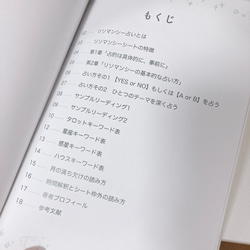 もくじ
02 リソマンシー占いとは
03 リソマンシーシートの特徴
04 第1章「占的は具体的に、事前に」
05 第2章「リソマンシーの基本的な占い方」
06 占い方その1 【YES or NO】もしくは【A or B】を占う
07 占い方その2 ひとつのテーマを深く占う
08 サンプルリーディング1
09 サンプルリーディング2
10 タロットキーワード表
12 星座キーワード表
13 惑星キーワード表
14 ハウスキーワード表
15 月の満ち欠けの読み方
16 時間解釈とシート枠外の読み方
17 著者プロフィール
18 参考文献